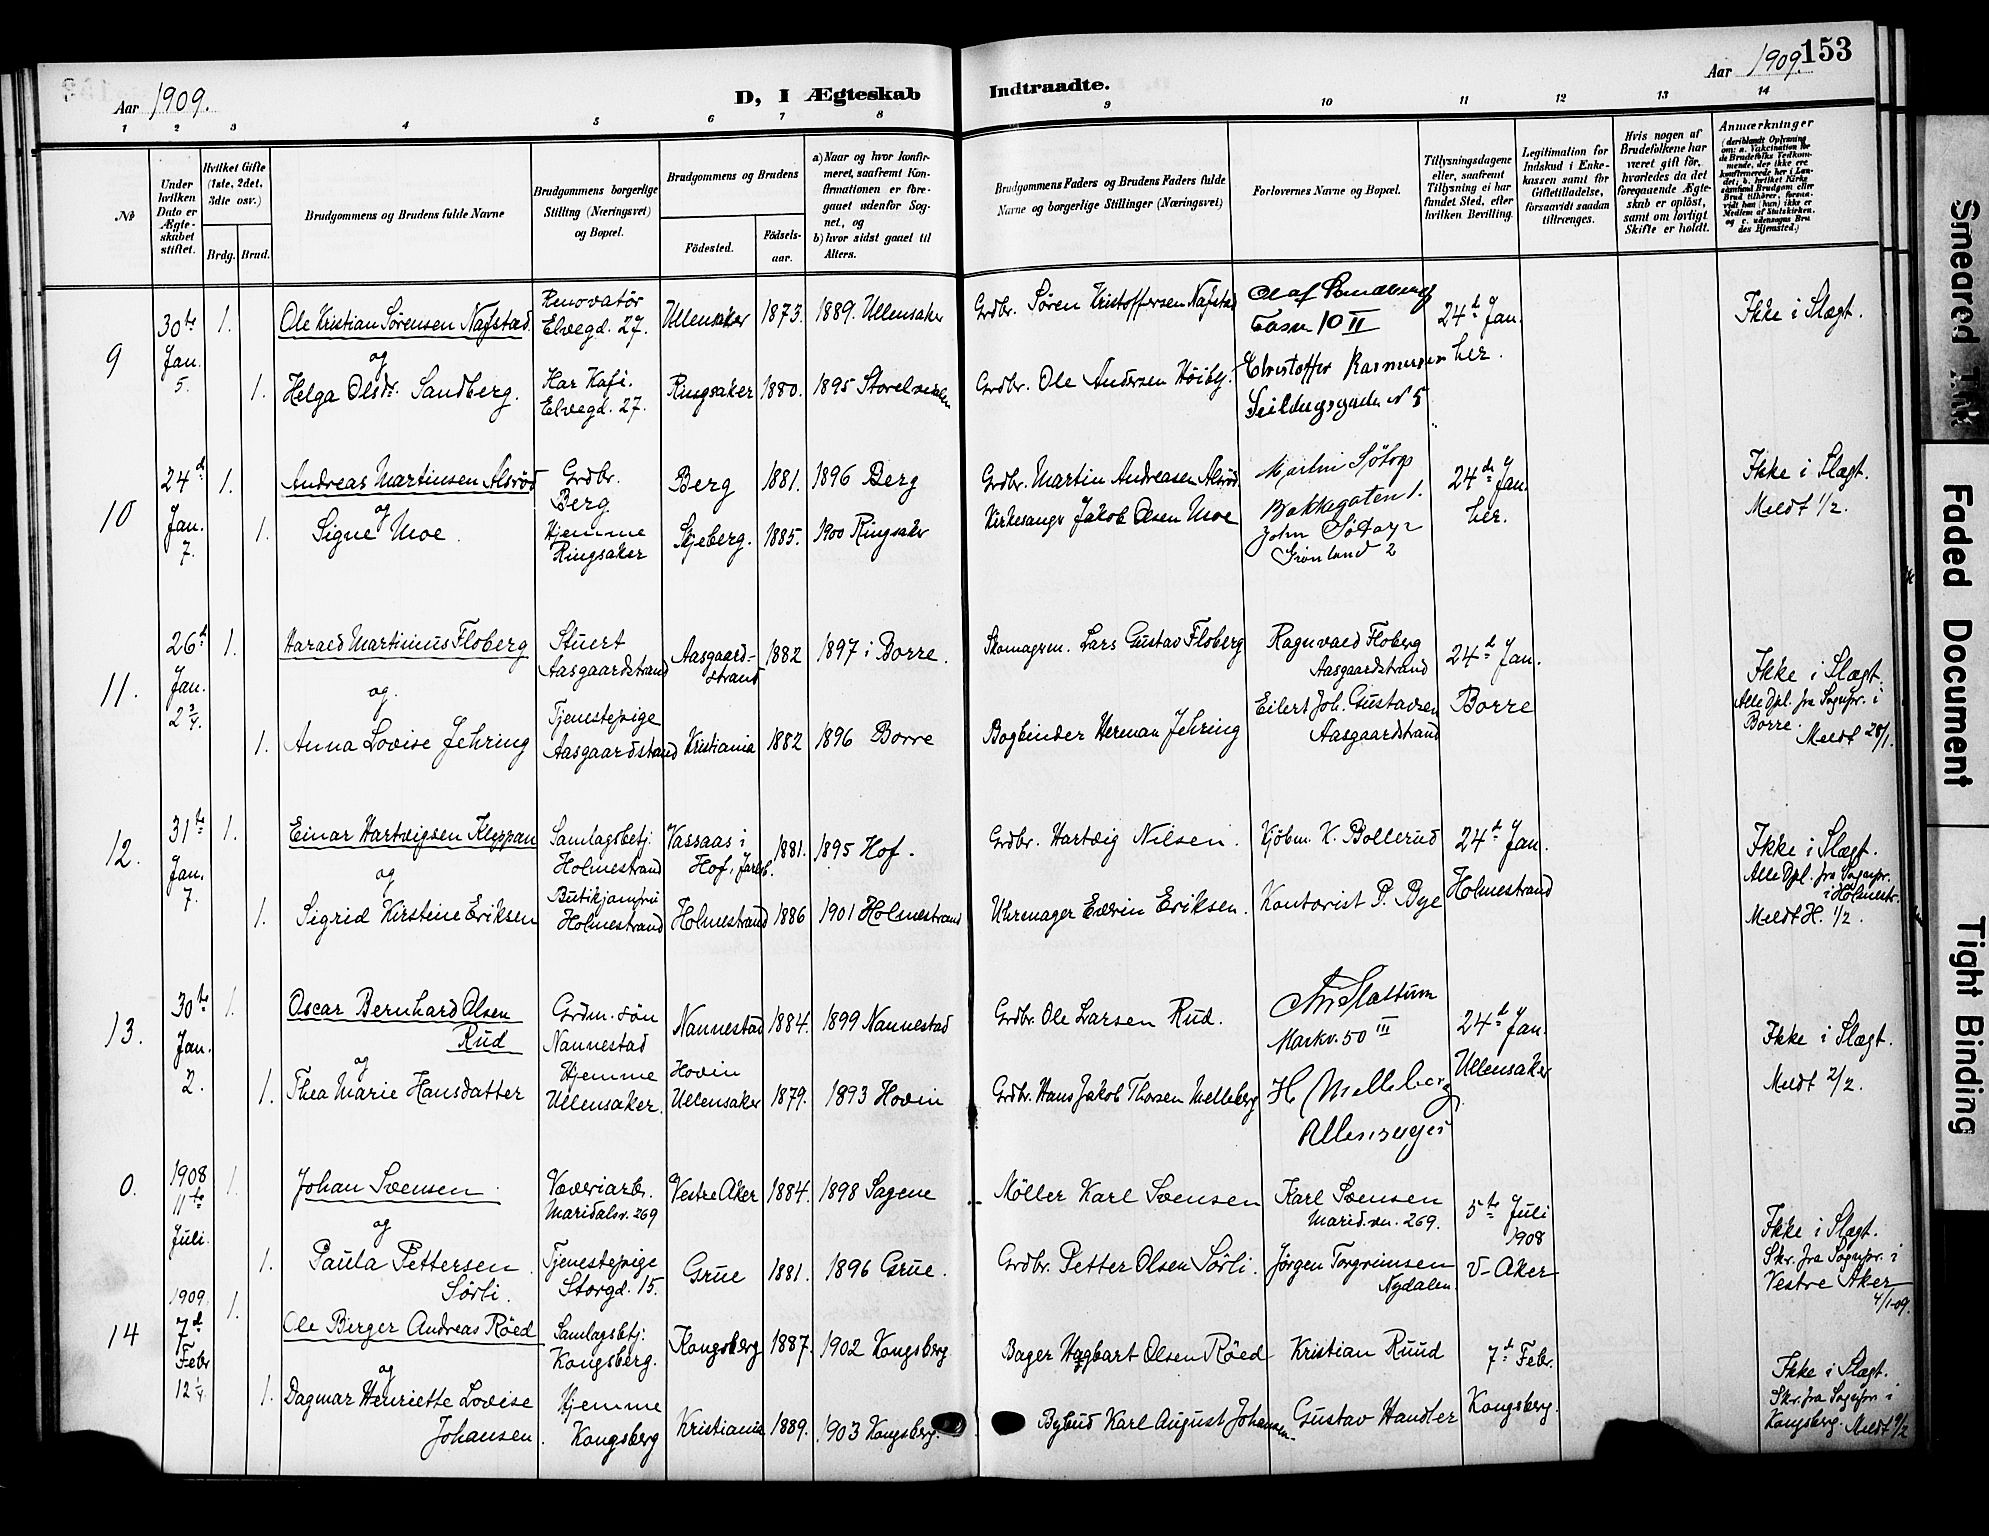 Aar 1909.
D, I Ægteskab Indtraadte.
Aar 1909. 153
1 2 3 4 5 6 7 8 9 10 11 12 13 14
No
Under hvilken Dato er Ægteskabet stiftet.
Hvilket Gifte (1ste, 2det, 3die osv.)
Brdg. Brud.
Brudgommens og Brudens fulde Navne
Brudgommens borgerlige Stilling (Næringsvei) og Bopæl.
Brudgommens og Brudens
Fødested.
Fødselsaar.
a) Naar og hvor konfirmeret, saafremt Konfirmationen er foregaaet udenfor Sognet, og
b) hvor sidst gaaet til Alters.
Brudgommens Faders og Brudens Faders fulde Navne og borgerlige Stillinger (Næringsvei)
Forlovernes Navne og Bopæl.
Tillysningsdagene eller, saafremt Tillysning ei har fundet Sted, efter hvilken Bevilling.
Legitimation for Indskud i Enkekassen samt for Giftetilladelse, forsaavidt saadan tiltrænges.
Hvis nogen af Brudefolkene har været gift før, hvorledes da det foregaaende Ægteskab er opløst, samt om lovligt Skifte er holdt.
Anmærkninger
9
30te Jan. 5.
1. Ole Kristian Sørensen Nafstad
Renovatør Elvegd. 27.
Ullensaker 1873. 1889. Ullensaker
Grdbr. Søren Kristoffersen Nafstad
24de Jan. her.
Ikke i Slægt.
og
1. Helga Olsdr. Sandberg.
Har Kafé. Elvegd. 27.
Ringsaker 1880. 1895
Grdbr. Ole Andersen Høiby.
10
24d Jan. 7.
1. Andreas Martinsen Alsrød
Grdbr. Berg
Berg 1881. 1896 Berg
Grdbr. Martin Andreasen Alsrød
Bakkegaten 1.
24de Jan. her.
Ikke i Slægt.
Meldt 1/2.
og
1. Signe Moe.
Hjemme Ringsaker
Skjeberg. 1885. 1900 Ringsaker
Kirkesanger Jakob Olsen Moe
Grønland 2
11.
26d Jan. 2 3/4.
1. Harald Martinius Floberg
Stuert Aasgaardstrand
Aasgaardstrand 1882 1897 i Borre.
Skomagerm. Lars Gustav Floberg
Ragnvald Floberg Aasgaardstrand
24d Jan. Borre
Ikke i Slægt.
Alle Opl. fra Sognepr. i Borre. Meldt 28/1.
og
1. Anna Lovise Jehring
Tjenestepige Aasgaardstrand
Kristiania 1882 1896 Borre
Bogbinder Herman Jehring
Eilert Joh. Gustavsen Aasgaardstrand
12.
31te Jan. 7.
1. Einar Hartvigsen Kleppan
Samlagsbetj. Holmestrand
Vassaas i Hof, Jarlsb. 1881. 1895 Hof.
Grdbr. Hartvig Nilsen.
Kjøbm. K. Bollerud
24d Jan. Holmestrand
Ikke i Slægt.
Alle Opl. fra Sognepr. i Holmestr.
Meldt H. 1/2.
og
1. Sigrid Kirstine Eriksen
Butikjomfru Holmestrand
Holmestrand 1886 1901 Holmestrand
Uhrmager Edvin Eriksen.
Kontorist P. Bye
13.
30te Jan. 2.
1. Oscar Bernhard Olsen Rud
Grdm. søn Nannestad
Nannestad 1884. 1899 Nannestad
Grdbr. Ole Larsen Rud.
Markv. 50 III
24d Jan. Ullensaker
Ikke i Slægt.
Meldt 2/2.
og
1. Thea Marie Hansdatter
Hjemme Ullensaker.
Hovin Ullensaker 1879. 1893 Hovin
Grdbr. Hans Jakob Thorsen Melleberg
H Melleberg
0.
1908 11te Juli.
1. Johan Svensen
Væveriarb. Maridalsv. 269
Vestre Aker 1884. 1898 Sagene
Møller Karl Svensen
Karl Svensen Marid.vn. 269.
5te Juli 1908 V-Aker
Ikke i Slægt.
Skr. fra Sognepr. i Vestre Aker 4/1-09.
og
1. Paula Pettersen Sørli.
Tjenestepige Storgd. 15.
Grue 1881. 1896 Grue.
Grdbr. Petter Olsen Sørli.
Jørgen Torgrimsen Nydalen.
14
1909. 7d Febr 12 1/4.
1. Ole Berger Andreas Røed
Samlagsbetj. Kongsberg.
Kongsberg 1887. 1902 Kongsberg
Bager Hagbart Olsen Røed
Kristian Ruud
7d Febr. Kongsberg.
Ikke i Slægt.
Skr. fra Sognepr. i Kongsberg. Meldt 9/2
og
1. Dagmar Henriette Lovise Johansen.
Hjemme Kongsberg
Kristiania 1889. 1903 Kongsberg.
Bybud Karl August Johansen.
Gustav Handler
Smeared Ink
Faded Document
Tight Binding